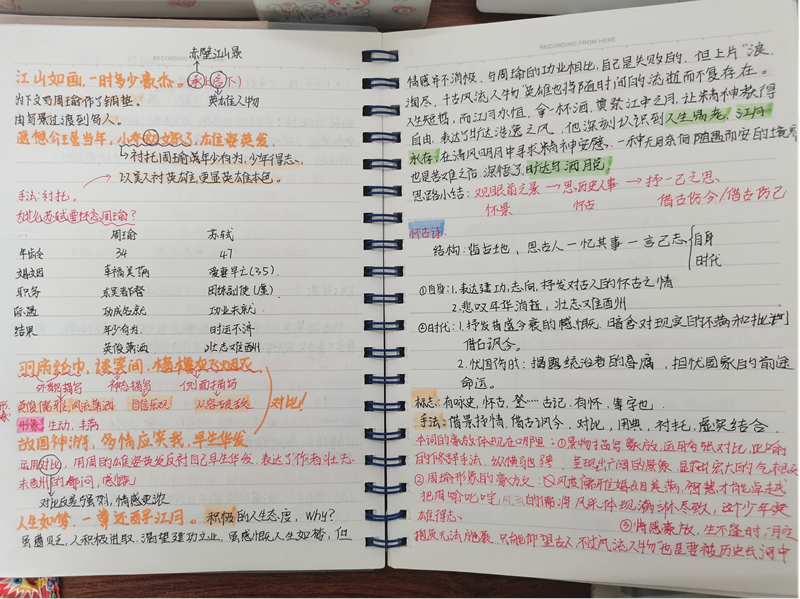 RECORDING
赤壁江山景
江山如画，一时多少豪杰。(承上启下)
为下文写周瑜作了铺垫。 英雄人物
由写景过渡到写人。
遥想公瑾当年，小乔初嫁了，雄姿英发。
衬托周瑜年少有为，少年得志。
以美人衬英雄，更显英雄本色。
手法：衬托。
为什么苏轼要怀念周瑜？
周瑜 苏轼
年龄 34 47
婚姻 幸福美满 爱妻早亡(35).
职务 东吴都督 团练副使(虚)
际遇 功成名就 功业未就
结果 年少有为， 时运不济
英俊潇洒 壮志难酬
羽扇纶巾，谈笑间，樯橹灰飞烟灭。
外貌描写 神态描写 侧面描写
英俊儒雅，风流潇洒 自信乐观
对比！
形象 生动，丰满
故国神游，多情应笑我，早生华发
运用对比，用周的雄姿英发反衬自己早生华发，表达了作者壮志
未酬的郁闷，感慨
对比反差强烈，情感更浓
人生如梦，一尊还酹江月。 积极的人生态度，Why?
虽遭贬，人积极进取，渴望建功立业，虽感慨人生如梦，但
RECORDING FROM HERE
情感并不消极，与周瑜的功业相比，自己是失败的，但上片“浪
淘尽，千古风流人物”英雄也将随时间的流逝而不复存在。
人生短暂，而江月永恒，拿一杯酒，奠祭江中之月，让精神获得
自由，表达了旷达洒脱之风，他深刻认识到人生易老，江月
永存，在清风明月中寻求精神安慰，一种无日不闲随遇而安的境界
也是苦难之后，深悟了旷达与洒脱。
思路小结：观眼前之景→思历史人事→抒一己之思
怀景 怀古 借古伤今/借古伤己
怀古诗：
结构：临古地，思古人—忆其事—言己志 自身
时代
①自身：1.表达建功，志向，抒发对古人的怀古之情
2.悲叹年华消逝，壮志难酬
②时代：1.抒发昔盛今衰的感慨，暗含对现实的不满和批判
借古讽今。
2.忧国伤时：揭露统治者的昏庸，担忧国家的前途
命运。
标志：有咏史，怀古，登…古记，有怀，等字也
手法：借景抒情，借古讽今，对比，用典，衬托，虚实结合
本词的豪放体现在哪里：①景物描写豪放，运用夸张对比，比喻
的修辞手法，纵横驰骋，呈现出广阔的景象，显露宏大的气
②周瑜形象的豪放：风度儒雅婚姻美满，智慧才能卓越
把周瑜叱咤风云的儒将风采体现淋漓尽致，这个少年英
雄得志。
③情感豪放，生不逢时，
抱负无法施展，只能仰望古人，不过风流人物也是要被历史长河中